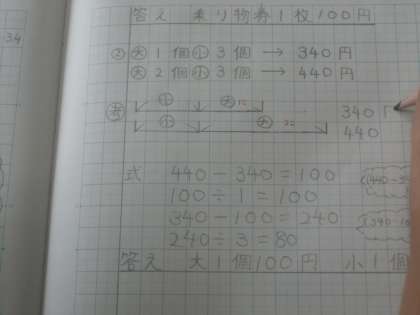 答え 乗り物券1枚100円
② 大 1個 小 3個 → 340円
大 2個 小 3個 → 440円
考 小 大 340
小 大 440
34
式 440-340=100
100÷1=100
340-100=240
240÷3=80
答え 大1個100円 小1個